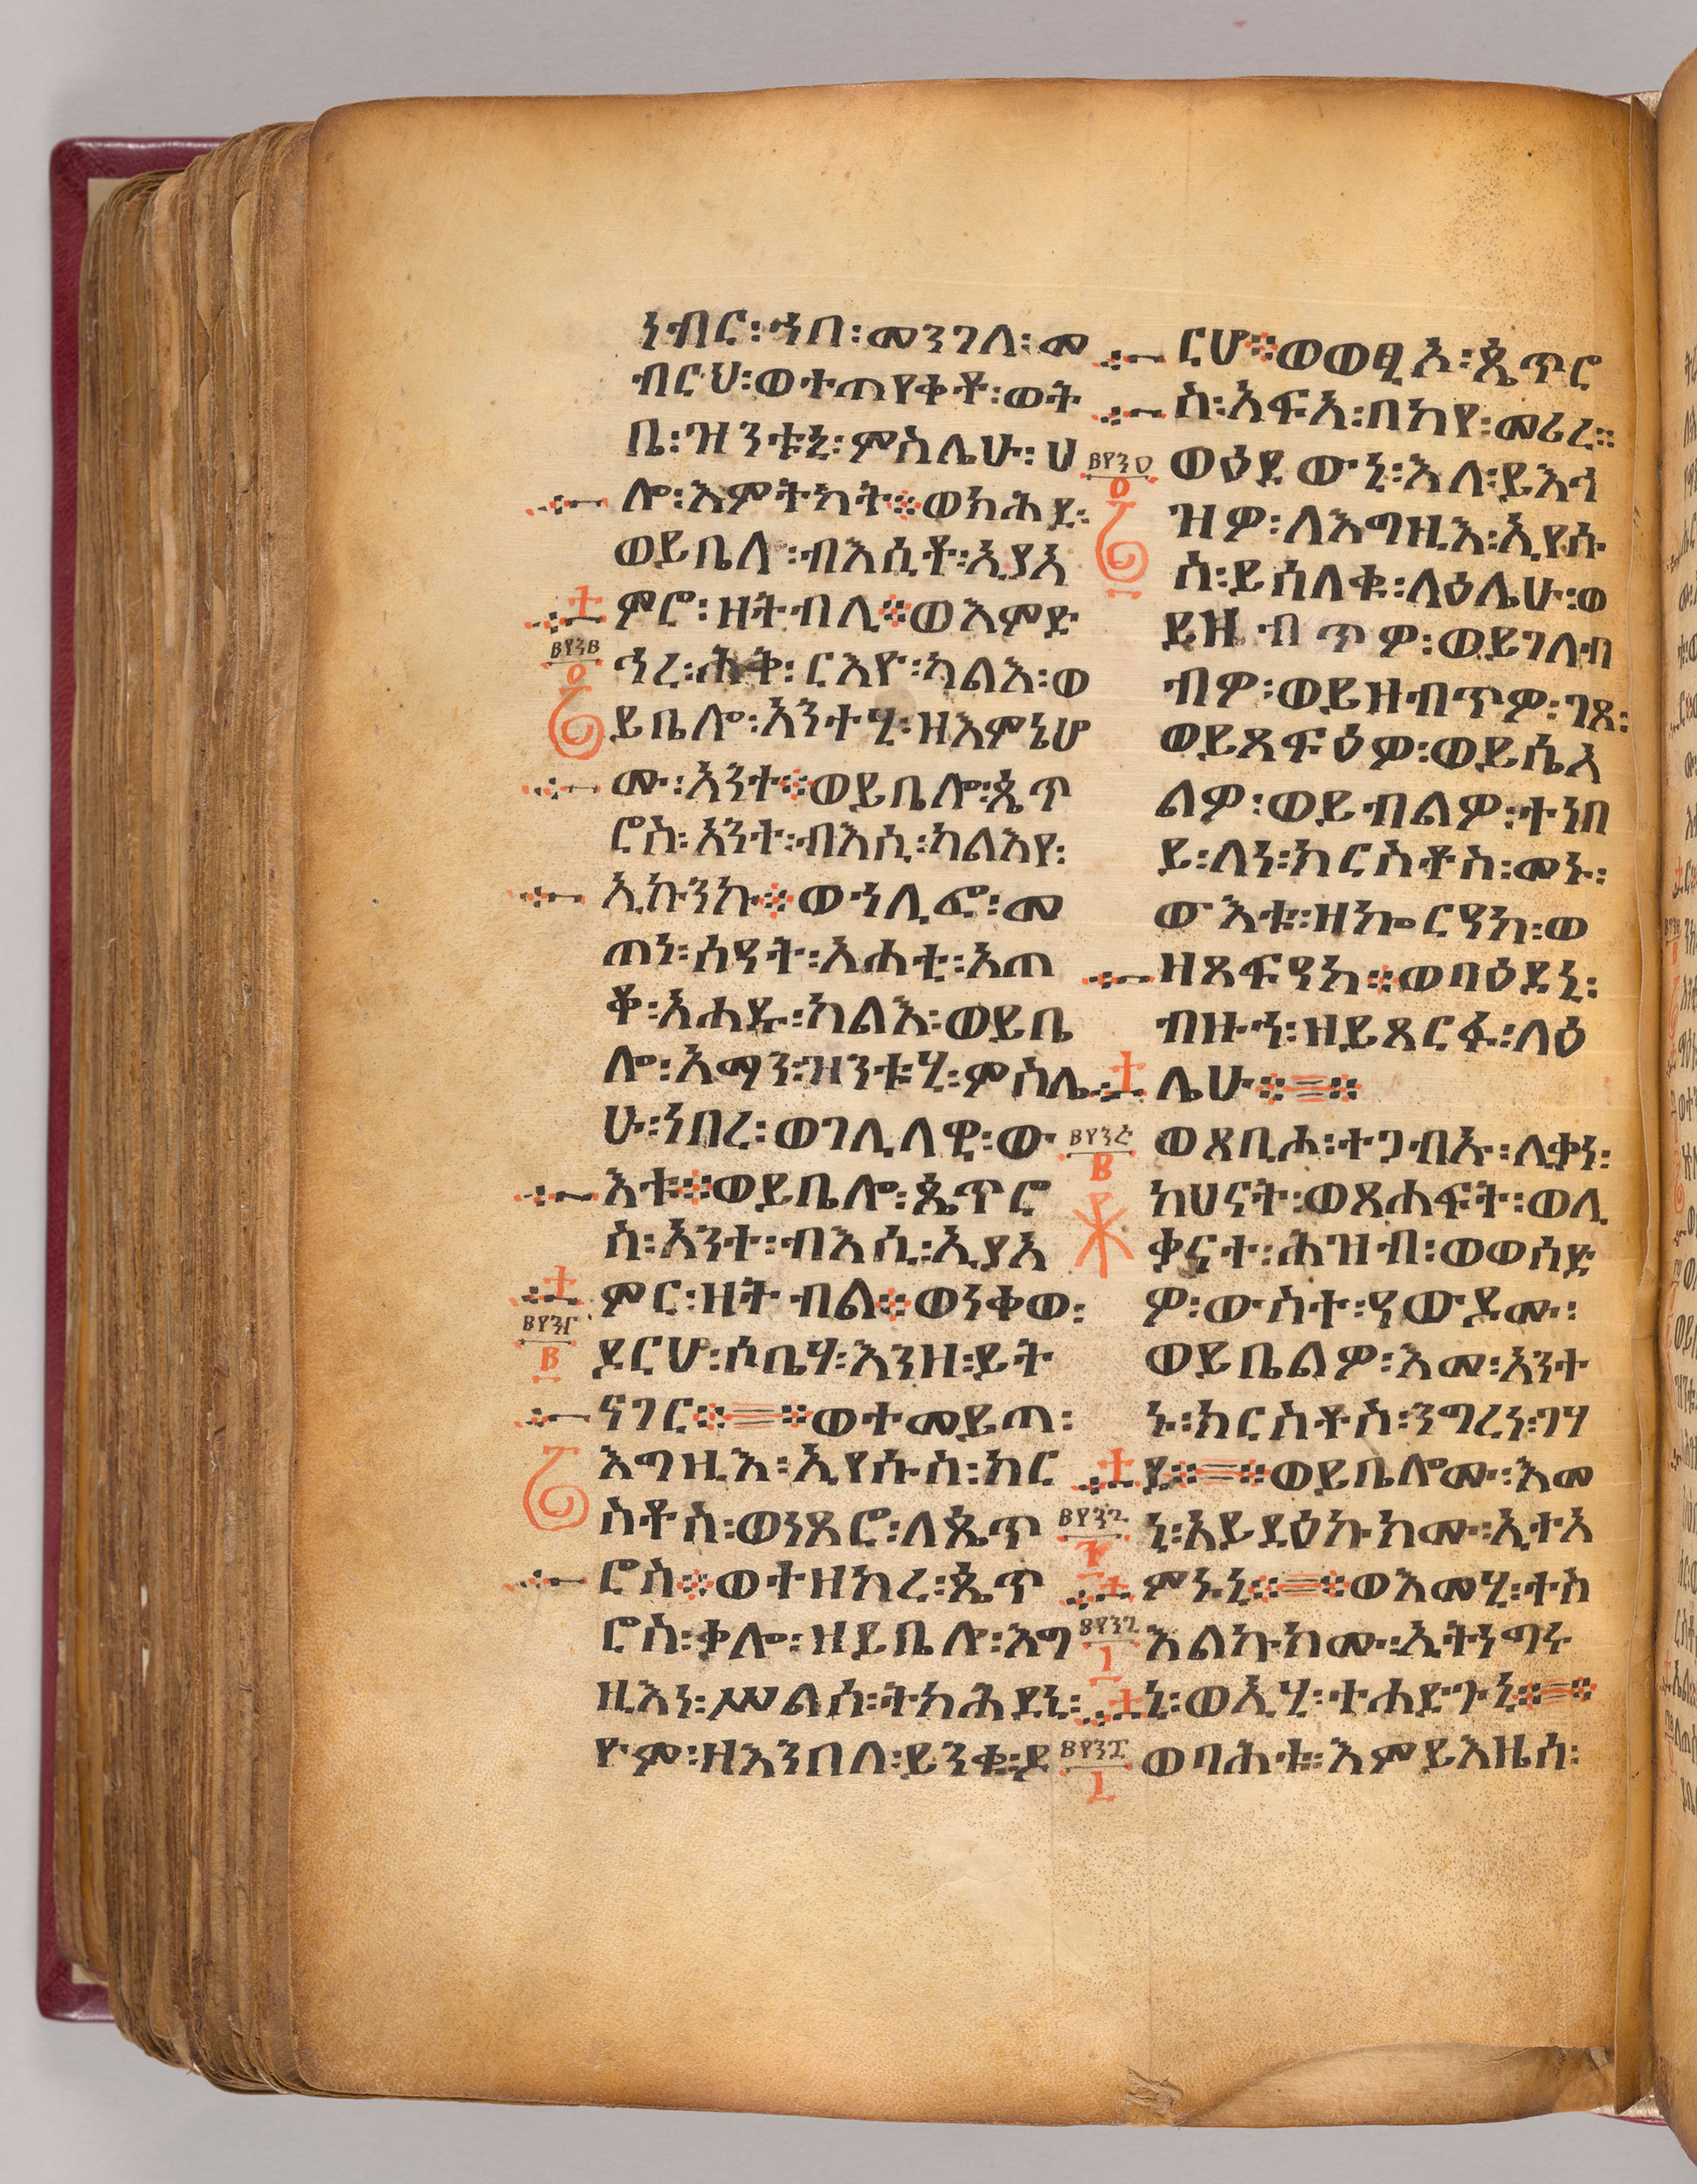 ነብር፡ኀበ፡መንገለ፡መ
ብርህ፡ወተጠየቀቶ፡ወት
ቤ፡ዝንቱኒ፡ምስሌሁ፡ሀ
ሎ፡እምትካት፨ወክሕደ፡
ወይቤላ፡ብእሲቶ፡ኢያአ
ምሮ፡ዘትብሊ፨ወእምድ
ኅረ፡ሕቅ፡ርእዮ፡ካልእ፡ወ
ይቤሎ፡አንተሂ፡ዘእምኔሆ
ሙ፡አንተ፨ወይቤሎ፡ጴጥ
ሮስ፡አንተ፡ብእሲ፡ካልእየ፡
ኢኩንኩ፨ወኀሊፎ፡መ
ጠነ፡ሰዓት፡አሐቲ፡አጠ
ቆ፡አሐዱ፡ካልእ፡ወይቤ
ሎ፡አማን፡ዝንቱሂ፡ምስሌ
ሁ፡ነበረ፡ወገሊላዊ፡ው
እቱ፨ወይቤሎ፡ጴጥሮ
ስ፡አንተ፡ብእሲ፡ኢያአ
ምር፡ዘትብል፨ወነቀወ፡
ደርሆ፡ሶቤሃ፡እንዘ፡ይት
ናገር፨፨ወተመይጠ፡
እግዚእ፡ኢየሱስ፡ክር
ስቶስ፡ወነጸሮ፡ለጴጥ
ሮስ፨ወተዘከረ፡ጴጥ
ሮስ፡ቃሎ፡ዘይቤሎ፡እግ
ዚእነ፡ሥልሰ፡ትክሕደኒ፡
ዮም፡ዘእንበለ፡ይንቁ፡ዶ
፪፻፺፪
፬
፪፻፺፫
፪
ርሆ፨ወወፂኦ፡ጴጥሮ
ስ፡አፍአ፡በከየ፡መሪረ።
ወዕደውኒ፡እለ፡ይእኅ
ዝዎ፡ለእግዚእ፡ኢየሱ
ስ፡ይሳለቁ፡ላዕሌሁ፡ወ
ይዝብጥዎ፡ወይገለብ
ብዎ፡ወይዘብጥዎ፡ገጸ፡
ወይጸፍዕዎ፡ወይሴአ
ልዎ፡ወይብልዎ፡ተነበ
ይ፡ለነ፡ክርስቶስ፡መኑ፡
ውእቱ፡ዘኰርዓከ፡ወ
ዘጸፍዓከ፨ወባዕደኒ፡
ብዙኀ፡ዘይጸርፉ፡ላዕ
ሌሁ፨፨
ወጸቢሖ፡ተጋብኡ፡ሊቃነ፡
ካህናት፡ወጸሐፍት፡ወሊ
ቃናተ፡ሕዝብ፡ወወሰድ
ዎ፡ውስተ፡ዓውዶሙ፡
ወይቤልዎ፡እመ፡አንተ
ኑ፡ክርስቶስ፡ንግረነ፡ገሃ
ደ፨፨ወይቤሎሙ፡እመ
ኒ፡አይዳዕኩክሙ፡ኢተአ
ምኑኒ፨፨ወእመሂ፡ተስ
እልኩክሙ፡ኢትነግሩ
ኒ፡ወኢሂ፡ተሐድጉኒ፨፨
ወባሕቱ፡እምይእዜሰ፡